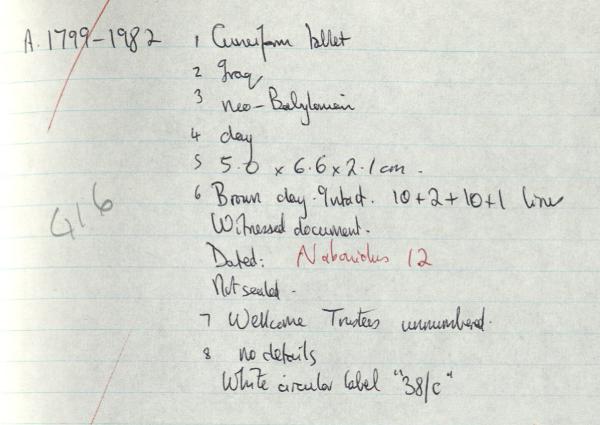 A. 1799-1982
1 Cuneiform tablet
2 Iraq
3 neo-Babylonian
4 clay
5 5.0 x 6.6 x 2.1 cm.
6 Brown clay. Intact. 10+2+10+1 lines
Witnessed document.
Dated: Nabonidus 12
Not sealed.
7 Wellcome Trustees unnumbered.
8 no details
White circular label "38/c"
G16